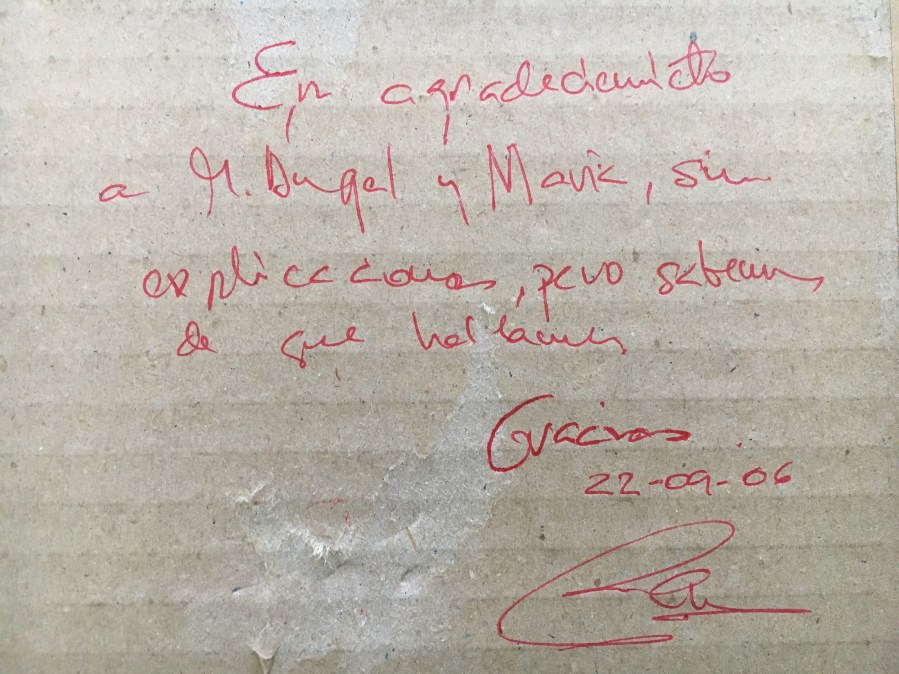 En agradecimiento
a M. Angel y Mavic, sin
explicaciones, pero sabemos
de que hablamos
Gracias.
22-09-06